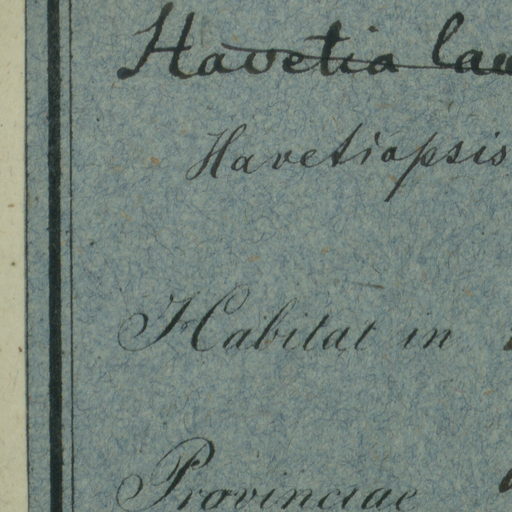 Havetia lau
Havetiopsis
Habitat in
Provinciae